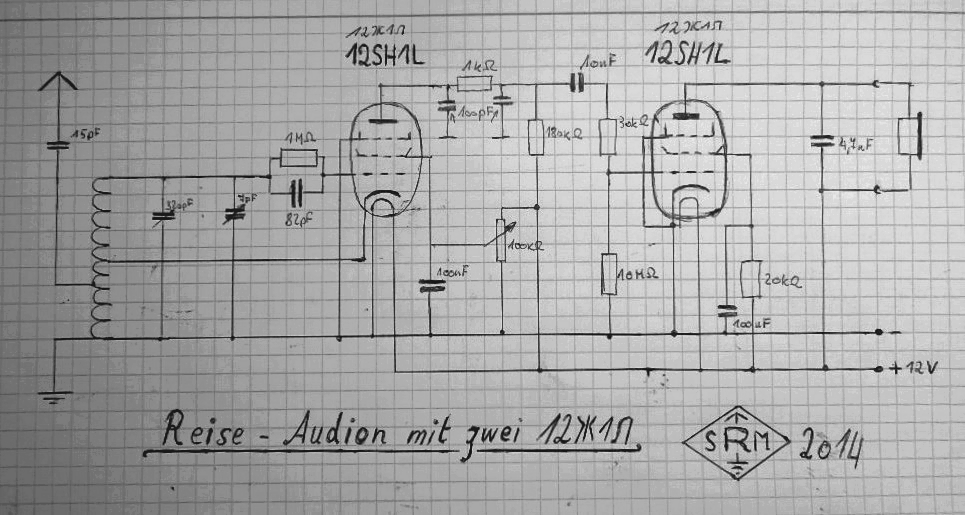 12Ж1Л
12SH1L
12Ж1Л
12SH1L
1kΩ
10nF
15pF
100pF
180kΩ
30kΩ
4,7nF
1MΩ
82pF
320pF
7pF
100kΩ
100nF
10MΩ
20kΩ
100µF
-
+ 12V
Reise - Audion mit zwei 12Ж1Л
SRM 2014